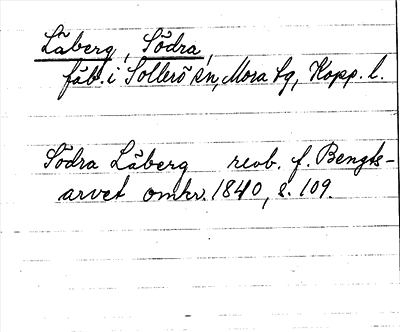 Läberg, Södra,
fäb. i Sollerö sn, Mora tg, Kopp. l.
Södra Läberg revb. f. Bengts-
arvet omkr. 1840, s. 109.